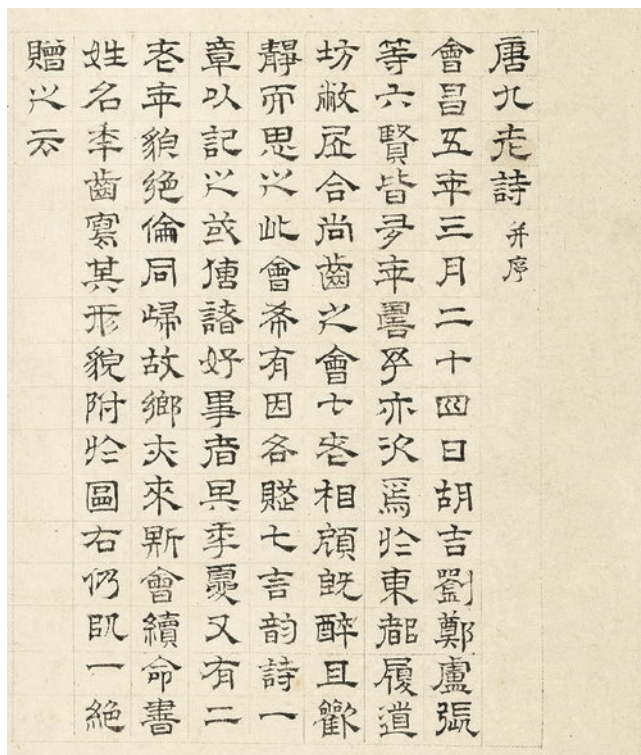 唐九老詩 并序
會昌五年三月二十四日胡吉劉鄭盧張
等六賢皆多年壽予亦次焉於東都履道
坊敝居合尚齒之會七老相顧既醉且歡
靜而思之此會希有因各賦七言韵詩一
章以記之或傳諸好事者其年夏又有二
老年貌絕倫同歸故鄉亦來斯會續命書
姓名年齒寫其形貌附於圖右仍以一絕
贈之云